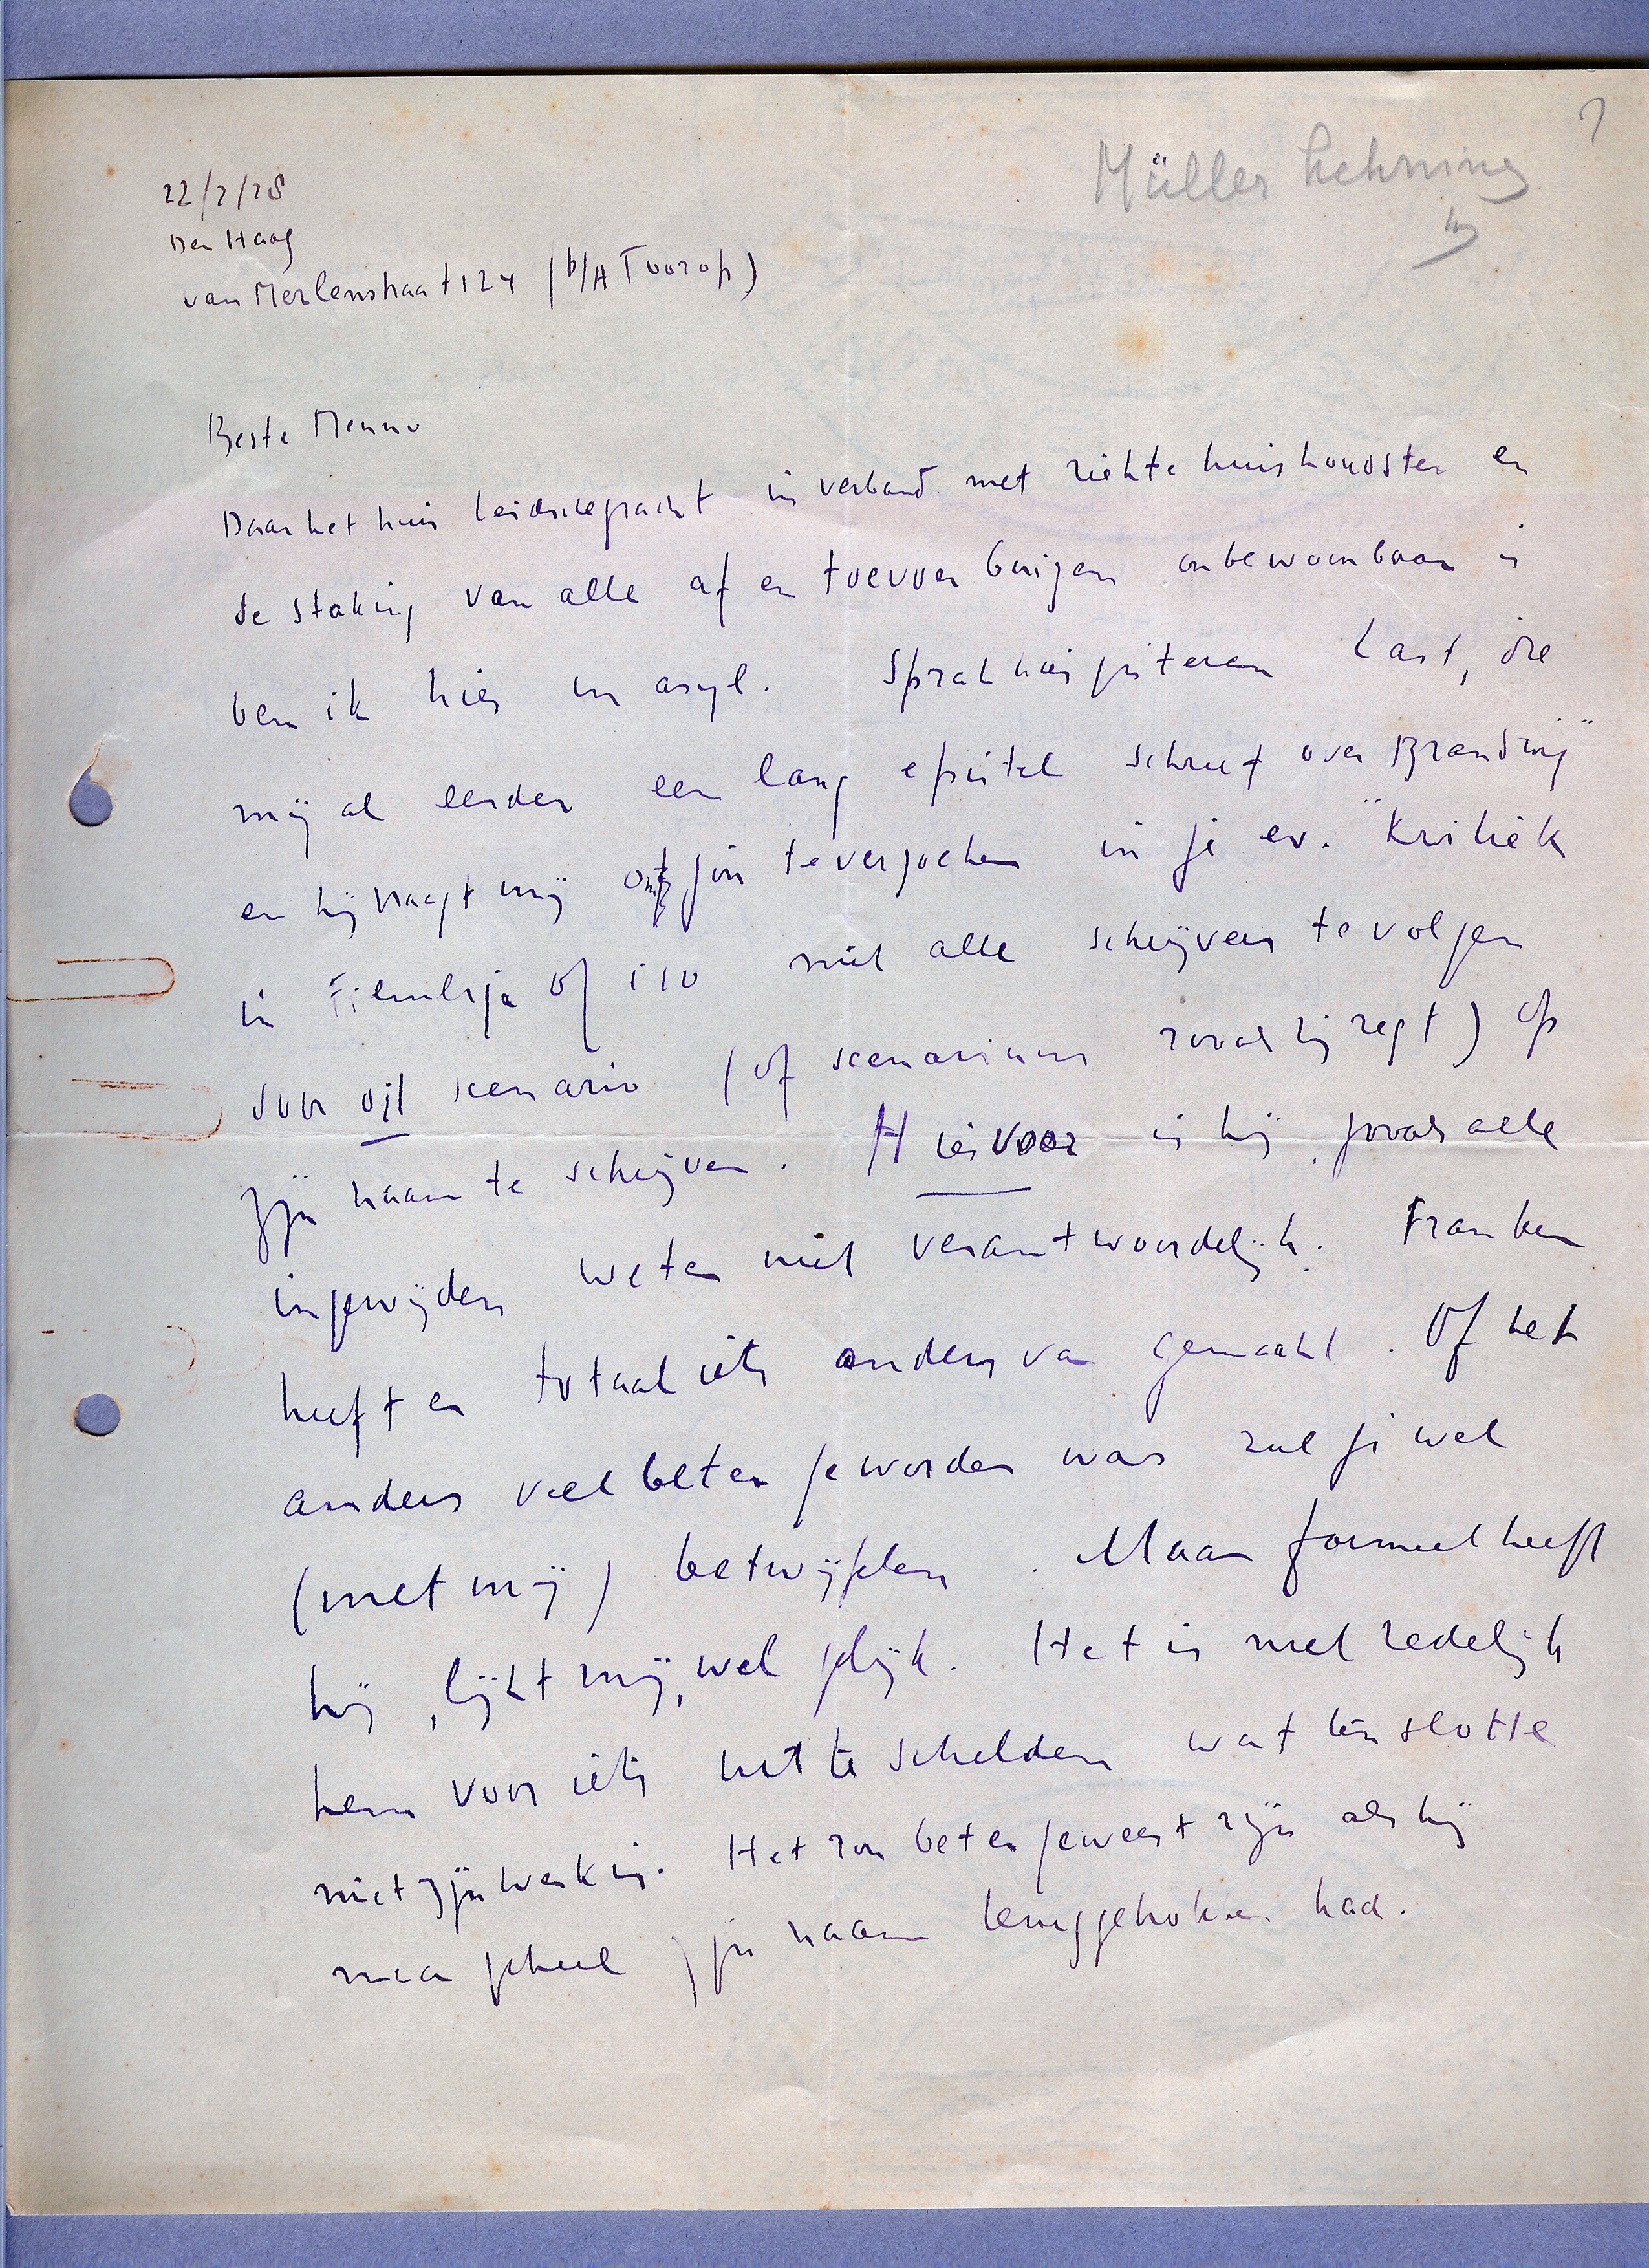 ?
Müller Lehning
22/2/28
Den Haag
van Merlenstraat 124 (b/A Toorop)
Beste Menno
Daar het huis Leidschegracht in verband met ziekte huishoudster en
de staking van alle af en toevoer buizen onbewoonbaar is
ben ik hier in asyl. Sprak gisteren Last, die
mij al eerder een lang epistel schreef over "Branding"
en hij vraagt mij om jou te verzoeken in je ev. "Kritiek
in Filmliga of i10 niet alle schrijvers te volgen
door dit scenario (of scenarium zooals hij zegt) op
zijn naam te schrijven. Hiervoor is hij, zooals alle
ingewijden weten niet verantwoordelijk. Franken
heeft er totaal iets anders van gemaakt. Of het
anders veel beter geworden was zul je wel
(met mij) betwijfelen. Maar formeel heeft
hij, lijkt mij, wel gelijk. Het is niet redelijk
hem voor iets uit te schelden wat ten slotte
niet zijn werk is. Het zou beter geweest zijn als hij
maar geheel zijn naam teruggetrokken had.